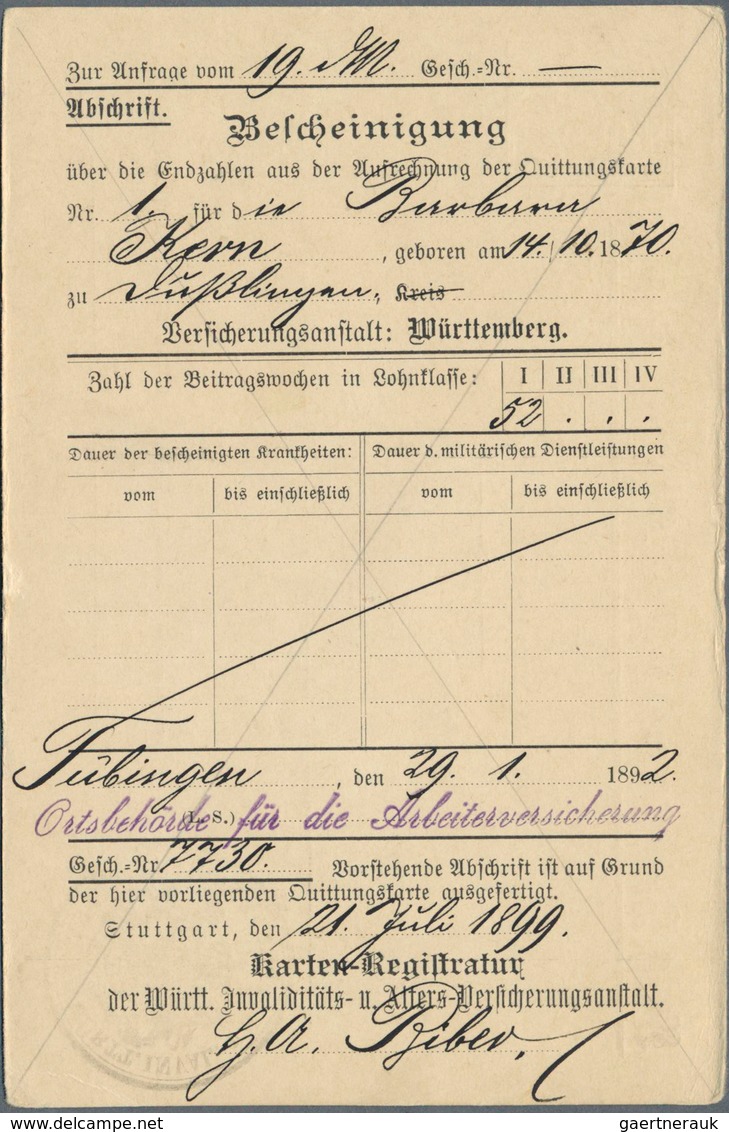 Zur Anfrage vom 19. d. M. Gesch.=Nr. —
Abschrift.
Bescheinigung
über die Endzahlen aus der Aufrechnung der Quittungskarte
Nr. 1. für die Barbara
Kern, geboren am 14. 10. 1870.
zu Dußlingen, Kreis
Versicherungsanstalt: Württemberg.
Zahl der Beitragswochen in Lohnklasse: I II III IV
52 . . .
Dauer der bescheinigten Krankheiten: Dauer d. militärischen Dienstleistungen
vom bis einschließlich vom bis einschließlich
Tübingen, den 29. 1. 1892.
(L. S.)
Ortsbehörde für die Arbeiterversicherung
Gesch.=Nr 7730. Vorstehende Abschrift ist auf Grund
der hier vorliegenden Quittungskarte ausgefertigt.
Stuttgart, den 21. Juli 1899.
Karten-Registratur
der Württ. Invaliditäts- u. Alters-Versicherungsanstalt.
H. A. Biber,
gaertnerauk